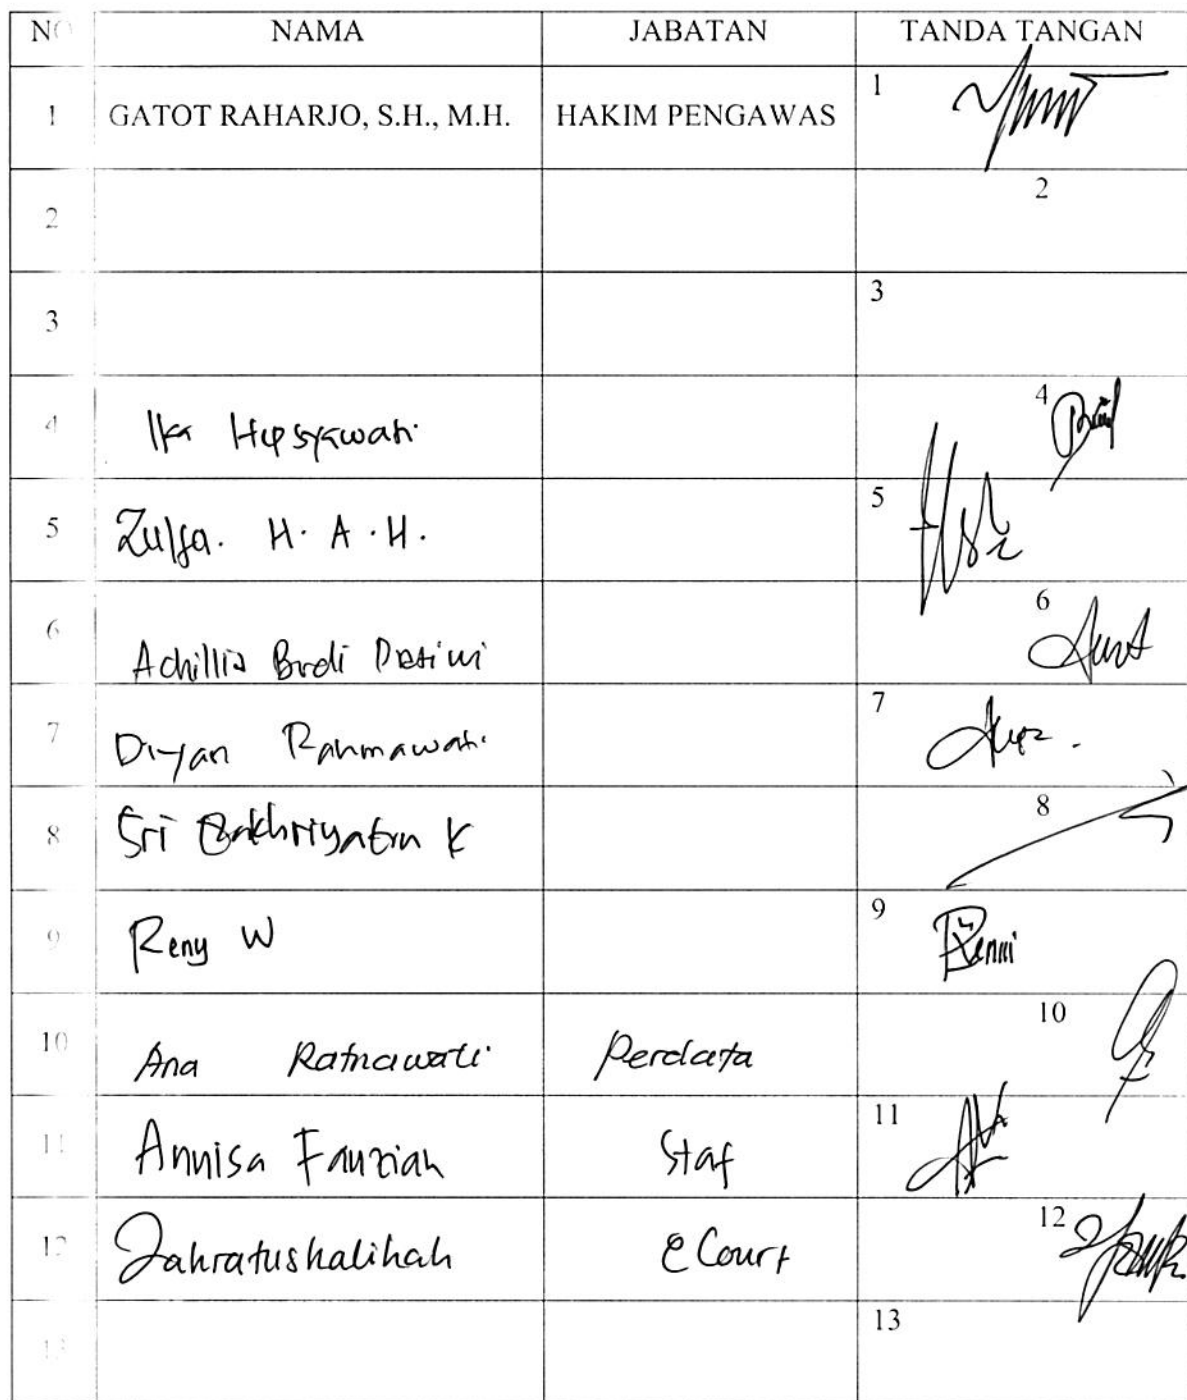 NO NAMA JABATAN TANDA TANGAN
1 GATOT RAHARJO, S.H., M.H. HAKIM PENGAWAS 1
2 2
3 3
4 Ika Hepsyawati 4
5 Zulfa. H. A. H. 5
6 Achillia Budi 6
7 Diyan Rahmawati 7
8 Sri K 8
9 Reny W 9
10 Ana Ratnawati Perdata 10
11 Annisa Fauziah Staf 11
12 Zahratushalihah e Court 12
13 13